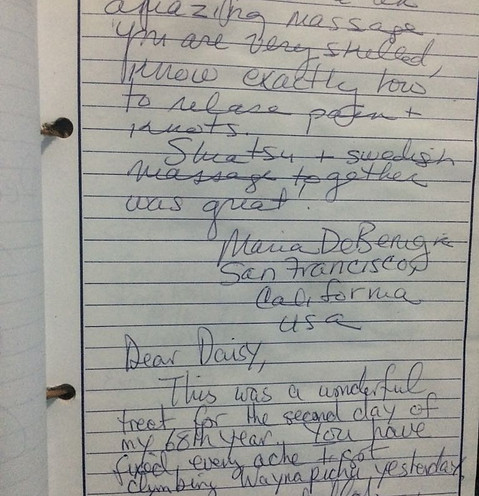 amazing massage.
You are very skilled,
know exactly how
to release pain +
knots.
Shiatsu + swedish
massage together
was great!
Maria DeBenig
San Francisco,
California
USA
Dear Daisy,
This was a wonderful
treat for the second day of
my 68th year. You have
fixed every ache I got
climbing Waynapichu yesterday.